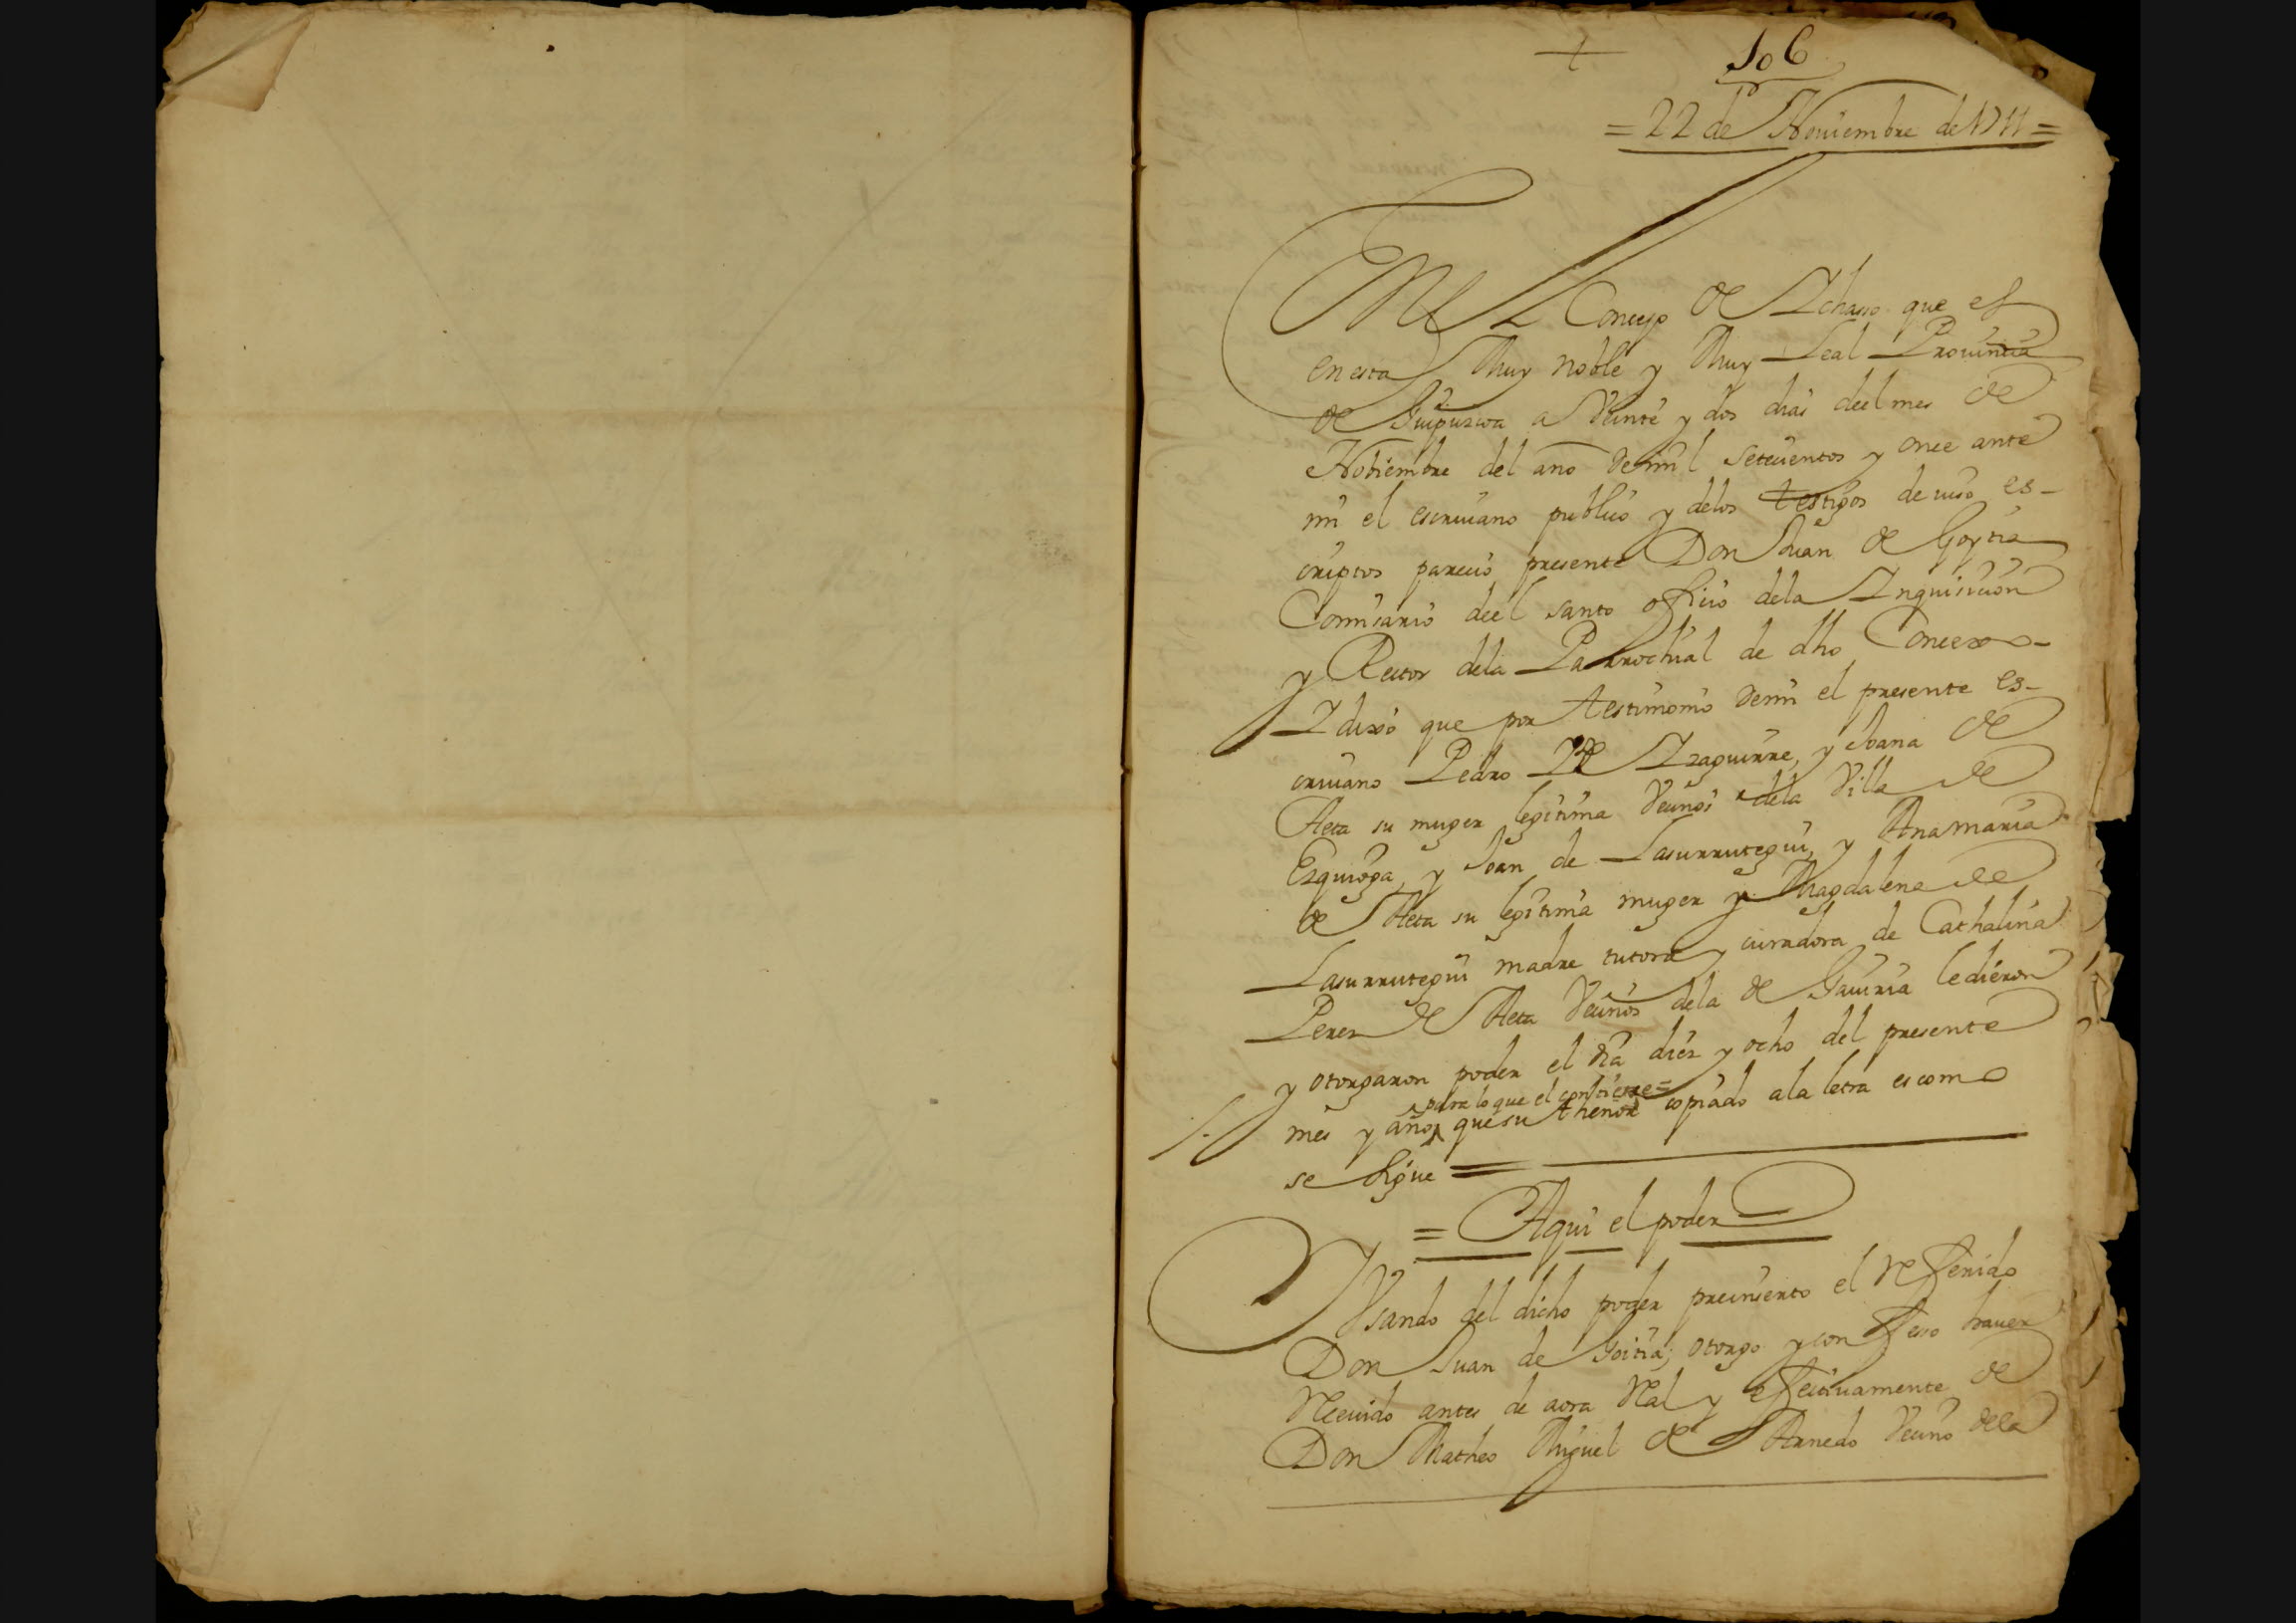 +
106
= 22 de Nouiembre de 1711 =
EN EL Concejo de Ichasso que es
en esta Muy noble y Muy Leal Prouincia
de Guipuzcoa a Veinte y dos dias deel mes de
Nobiembre del año de mil setecientos y once ante
mi el escriuano publico y delos testigos de iuso es-
criptos parecio presente Don Juan de Goytia
Comisario deel santo oficio dela Inquisicion
y Rector dela Parrochial de dho Concexo -
I dixo que por testimonio de mi el presente es-
criuano Pedro de Izaguirre, y Joana de
Aeta su muger legitima Vecinos dela Villa de
Ezquioga, y Joan de Lasurrutegui, y Ana maria
de Aeta su legitima muger y Magdalena de
Lasurrutegui madre tutora y curadora de Cathalina
Perez de Aeta Vecinos dela de Gauiria le dieron
y otorgaron poder el dia diez y ocho del presente
para lo que el contiene =
mes y año, que su thenor copiado ala letra es como
se sigue =
= Aqui el poder =
Vsando del dicho poder preinserto el Refferido
Don Juan de Goitia; otorgo y confesso hauer
Receuido antes de aora Real y effectiuamente de
Don Matheo Miguel de Arnedo Vecino dela